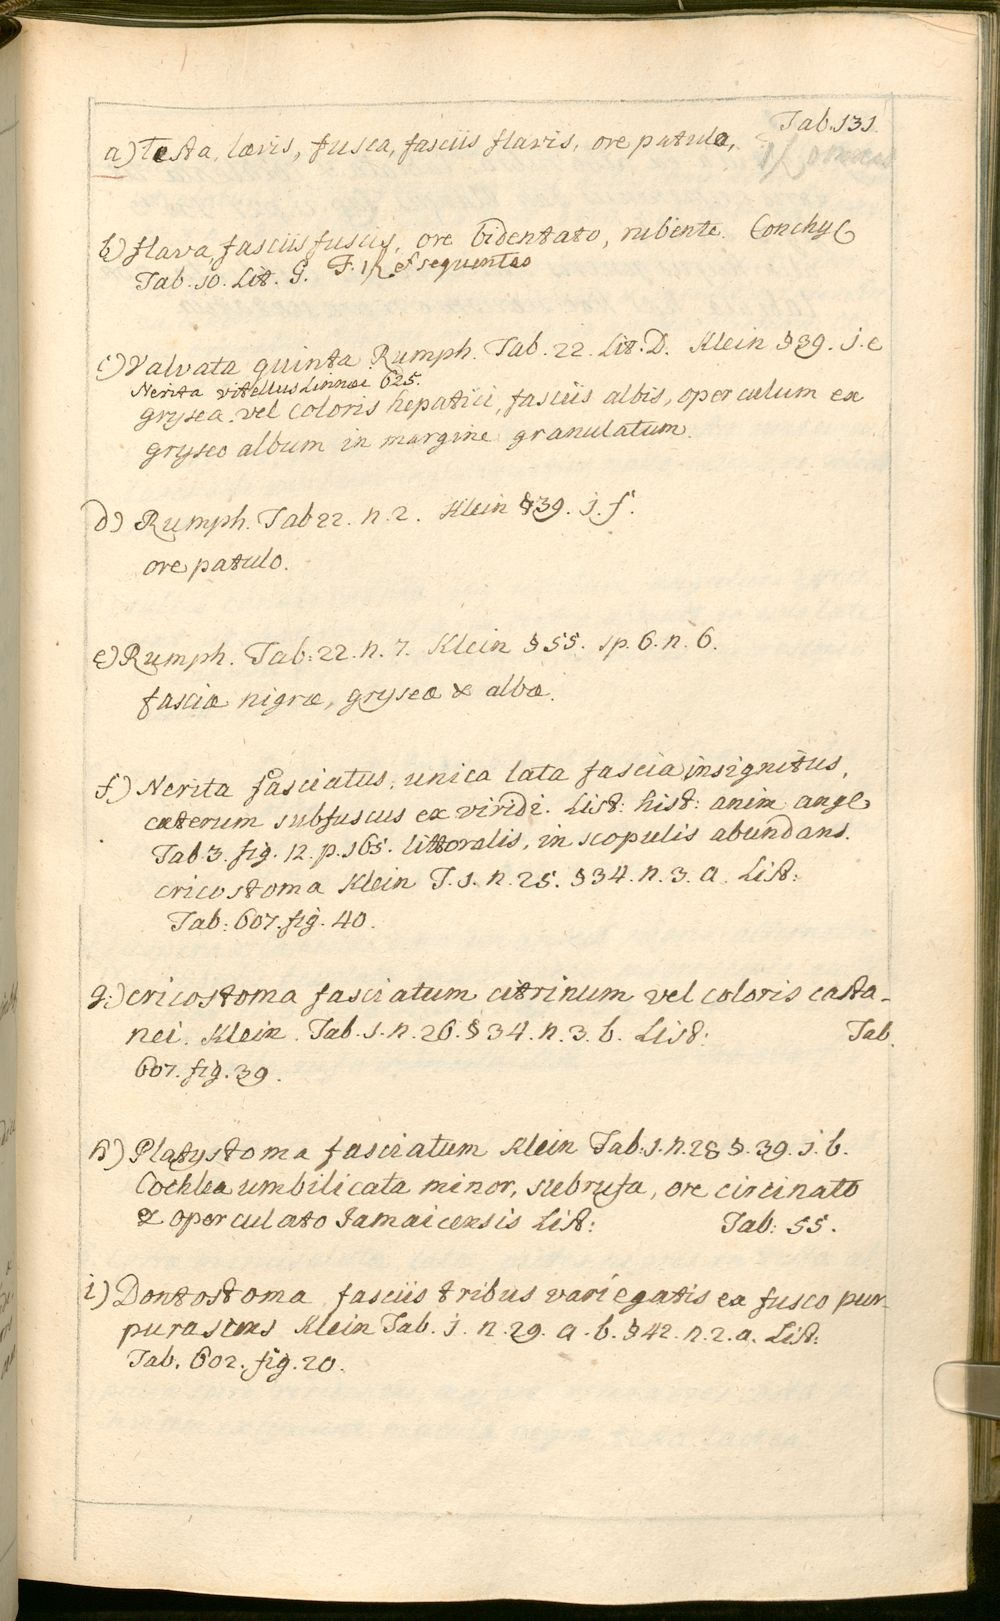 Tab. 131.
a) Testa, lævis, fusca, fasciis flavis, ore patulo,
b) flava, fasciis fuscis, ore bidentato, rubente. Conchyl
Tab. 10. Lit. G. F. 1, et sequentes
c) Valvata quinta Rumph. Tab. 22. Lit. D. Klein §39. j. e
Nerita vitellus Linnæi 625.
grysea vel coloris hepatici, fasciis albis, operculum ex
gryseo album in margine granulatum.
d) Rumph. Tab 22. n. 2. Klein §39. j. f.
ore patulo.
e) Rumph. Tab: 22. n. 7. Klein §55. sp. 6. n. 6.
fasciæ nigræ, gryseæ & albæ.
f) Nerita fasciatus, unica lata fascia insignitus,
cæterum subfuscus ex viridi. List: hist: anim angl
Tab 3. fig. 12. p. 165. littoralis, in scopulis abundans.
cricostoma Klein T. 1. n. 25. §34. n. 3. a. List:
Tab: 607. fig. 40.
g.) cricostoma fasciatum citrinum vel coloris casta-
nei. Klein. Tab. 1. n. 26. §34. n. 3. b. List: Tab.
607. fig. 39.
h) Platystoma fasciatum Klein Tab. 1. n. 28 §. 39. j. b.
Cochlea umbilicata minor, subrufa, ore circinato
& operculato Jamaicensis List: Tab: 55.
i) Dontostoma fasciis tribus variegatis ex fusco pur-
purascens Klein Tab. j. n. 29. a. b. §42. n. 2. a. List:
Tab. 602. fig. 20.